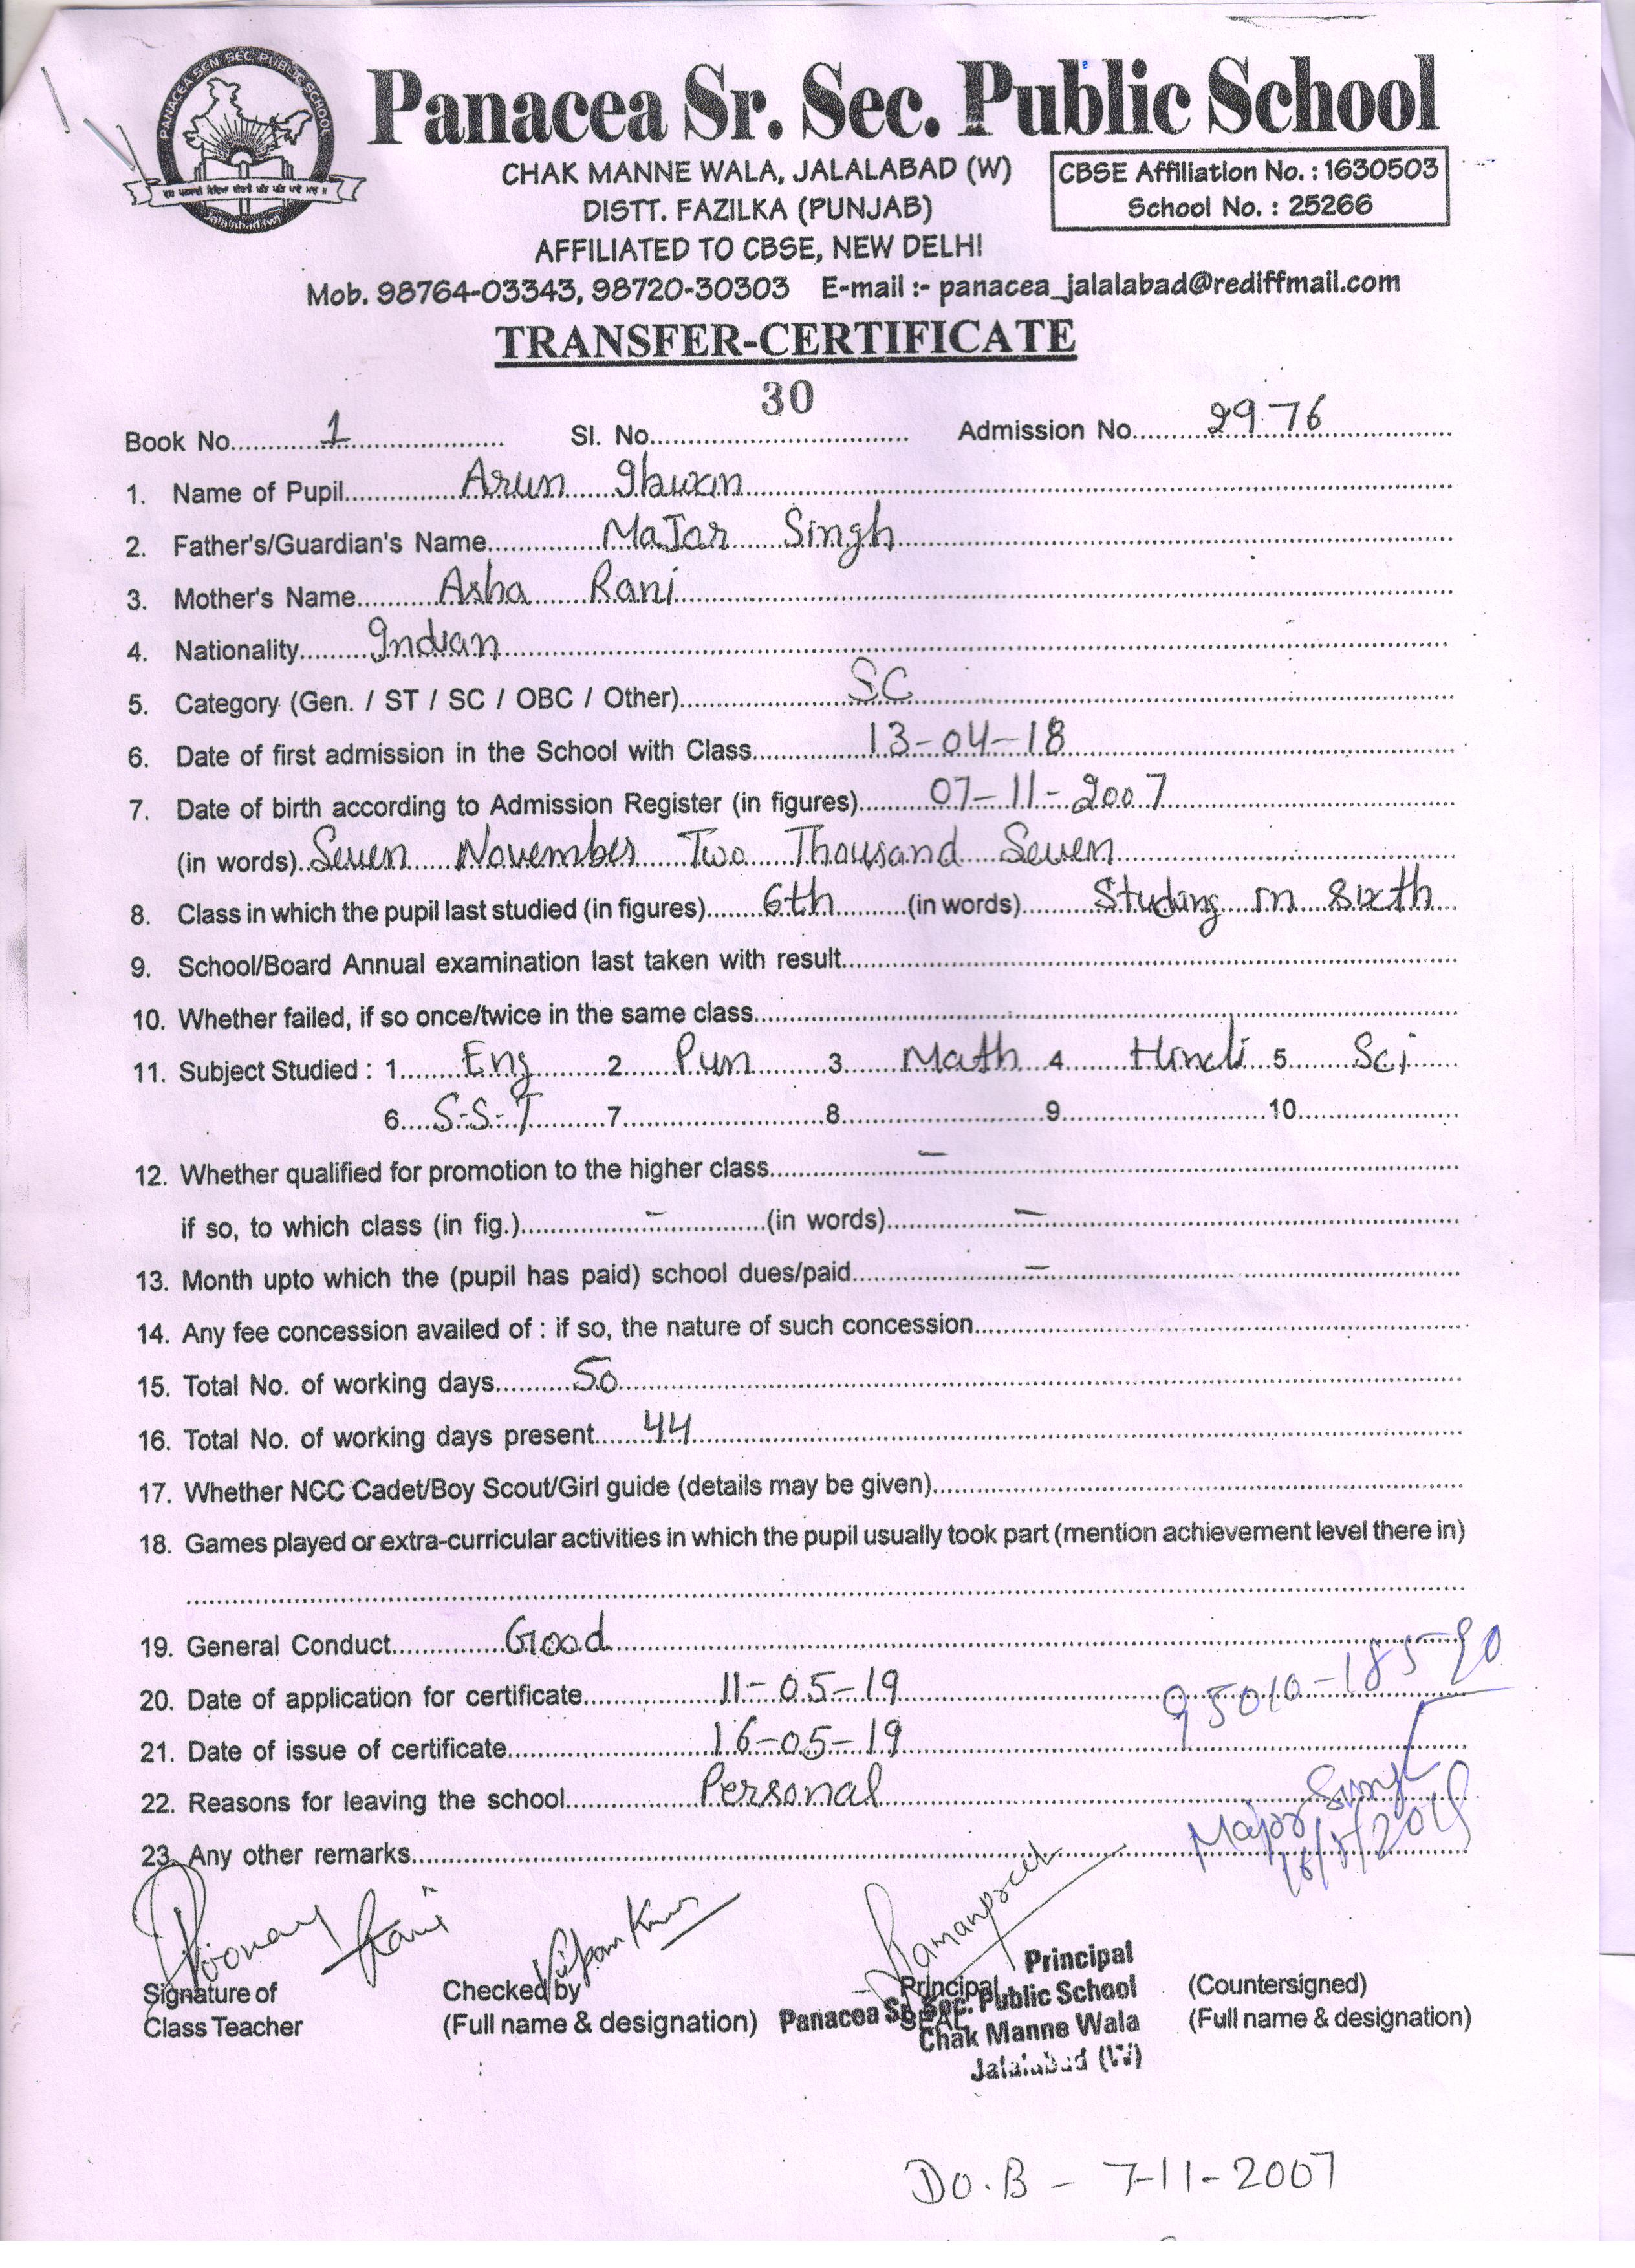 PANACEA SEN SEC PUBLIC SCHOOL
Jalalabad (W)
Panacea Sr. Sec. Public School
CHAK MANNE WALA, JALALABAD (W)
DISTT. FAZILKA (PUNJAB)
AFFILIATED TO CBSE, NEW DELHI
CBSE Affiliation No. : 1630503
School No. : 25266
Mob. 98764-03343, 98720-30303 E-mail :- panacea_jalalabad@rediffmail.com
TRANSFER-CERTIFICATE
30
Book No. 1 Sl. No. Admission No. 2976
1. Name of Pupil Arun
2. Father's/Guardian's Name MaJar Singh
3. Mother's Name Asha Rani
4. Nationality Indian
5. Category (Gen. / ST / SC / OBC / Other) SC
6. Date of first admission in the School with Class 13-04-18
7. Date of birth according to Admission Register (in figures) 07-11-2007
(in words) Seven November Two Thousand Seven
8. Class in which the pupil last studied (in figures) 6th (in words) Studing in sixth
9. School/Board Annual examination last taken with result
10. Whether failed, if so once/twice in the same class
11. Subject Studied : 1 Eng 2 Pun 3 Math 4 Hindi 5 Sci
6 S.S.T 7 8 9 10
12. Whether qualified for promotion to the higher class –
if so, to which class (in fig.) – (in words) –
13. Month upto which the (pupil has paid) school dues/paid –
14. Any fee concession availed of : if so, the nature of such concession
15. Total No. of working days 50
16. Total No. of working days present 44
17. Whether NCC Cadet/Boy Scout/Girl guide (details may be given)
18. Games played or extra-curricular activities in which the pupil usually took part (mention achievement level there in)
19. General Conduct Good
20. Date of application for certificate 11-05-19
95010-18590
21. Date of issue of certificate 16-05-19
22. Reasons for leaving the school Personal
Major Singh
16/5/2019
23. Any other remarks
Poonam Rani
Vipan Kumar
Ramanpreet
Signature of
Class Teacher
Checked by
(Full name & designation)
Principal
SEAL
Principal
Panacea Sr. Sec. Public School
Chak Manne Wala
Jalalabad (W)
(Countersigned)
(Full name & designation)
Do.B - 7-11-2007